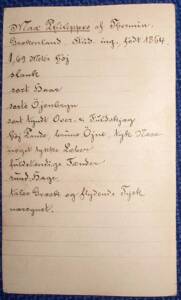 Max Philippos af Thermia.
Grækenland. Stud. ing. født 1864
1,69 Meter Høj
slank
sort Haar
sorte Øjenbryn
sort tyndt Over- & Fuldskjæg
høj Pande, brune Øjne, tyk Næse
noget tykke Læber
fuldstændige Tænder
rund Hage.
taler Græsk og flydende Tysk